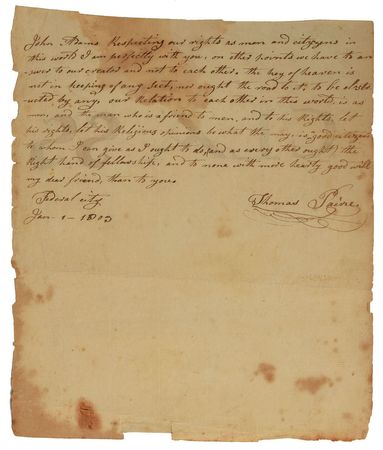 John Adams Respecting our rights as men and citizens in
this world I am perfectly with you, on other points we have to an
swer to our creator and not to each other. the key of heaven is
not in keeping of any sect, nor ought the road to it, to be obstr
ucted by any, our Relation to each other in this world, is as
men, and the man who is a friend to man, and to his Rights, let
his rights, let his Religious opinions be what the may, is good citizen
to whom I can give as I ought to do, (and as every other ought) the
Right hand of fellowship, and to none with more hearty good will,
my dear friend, than to you.
Federal city
Jan - 1 - 1803
Thomas Paine